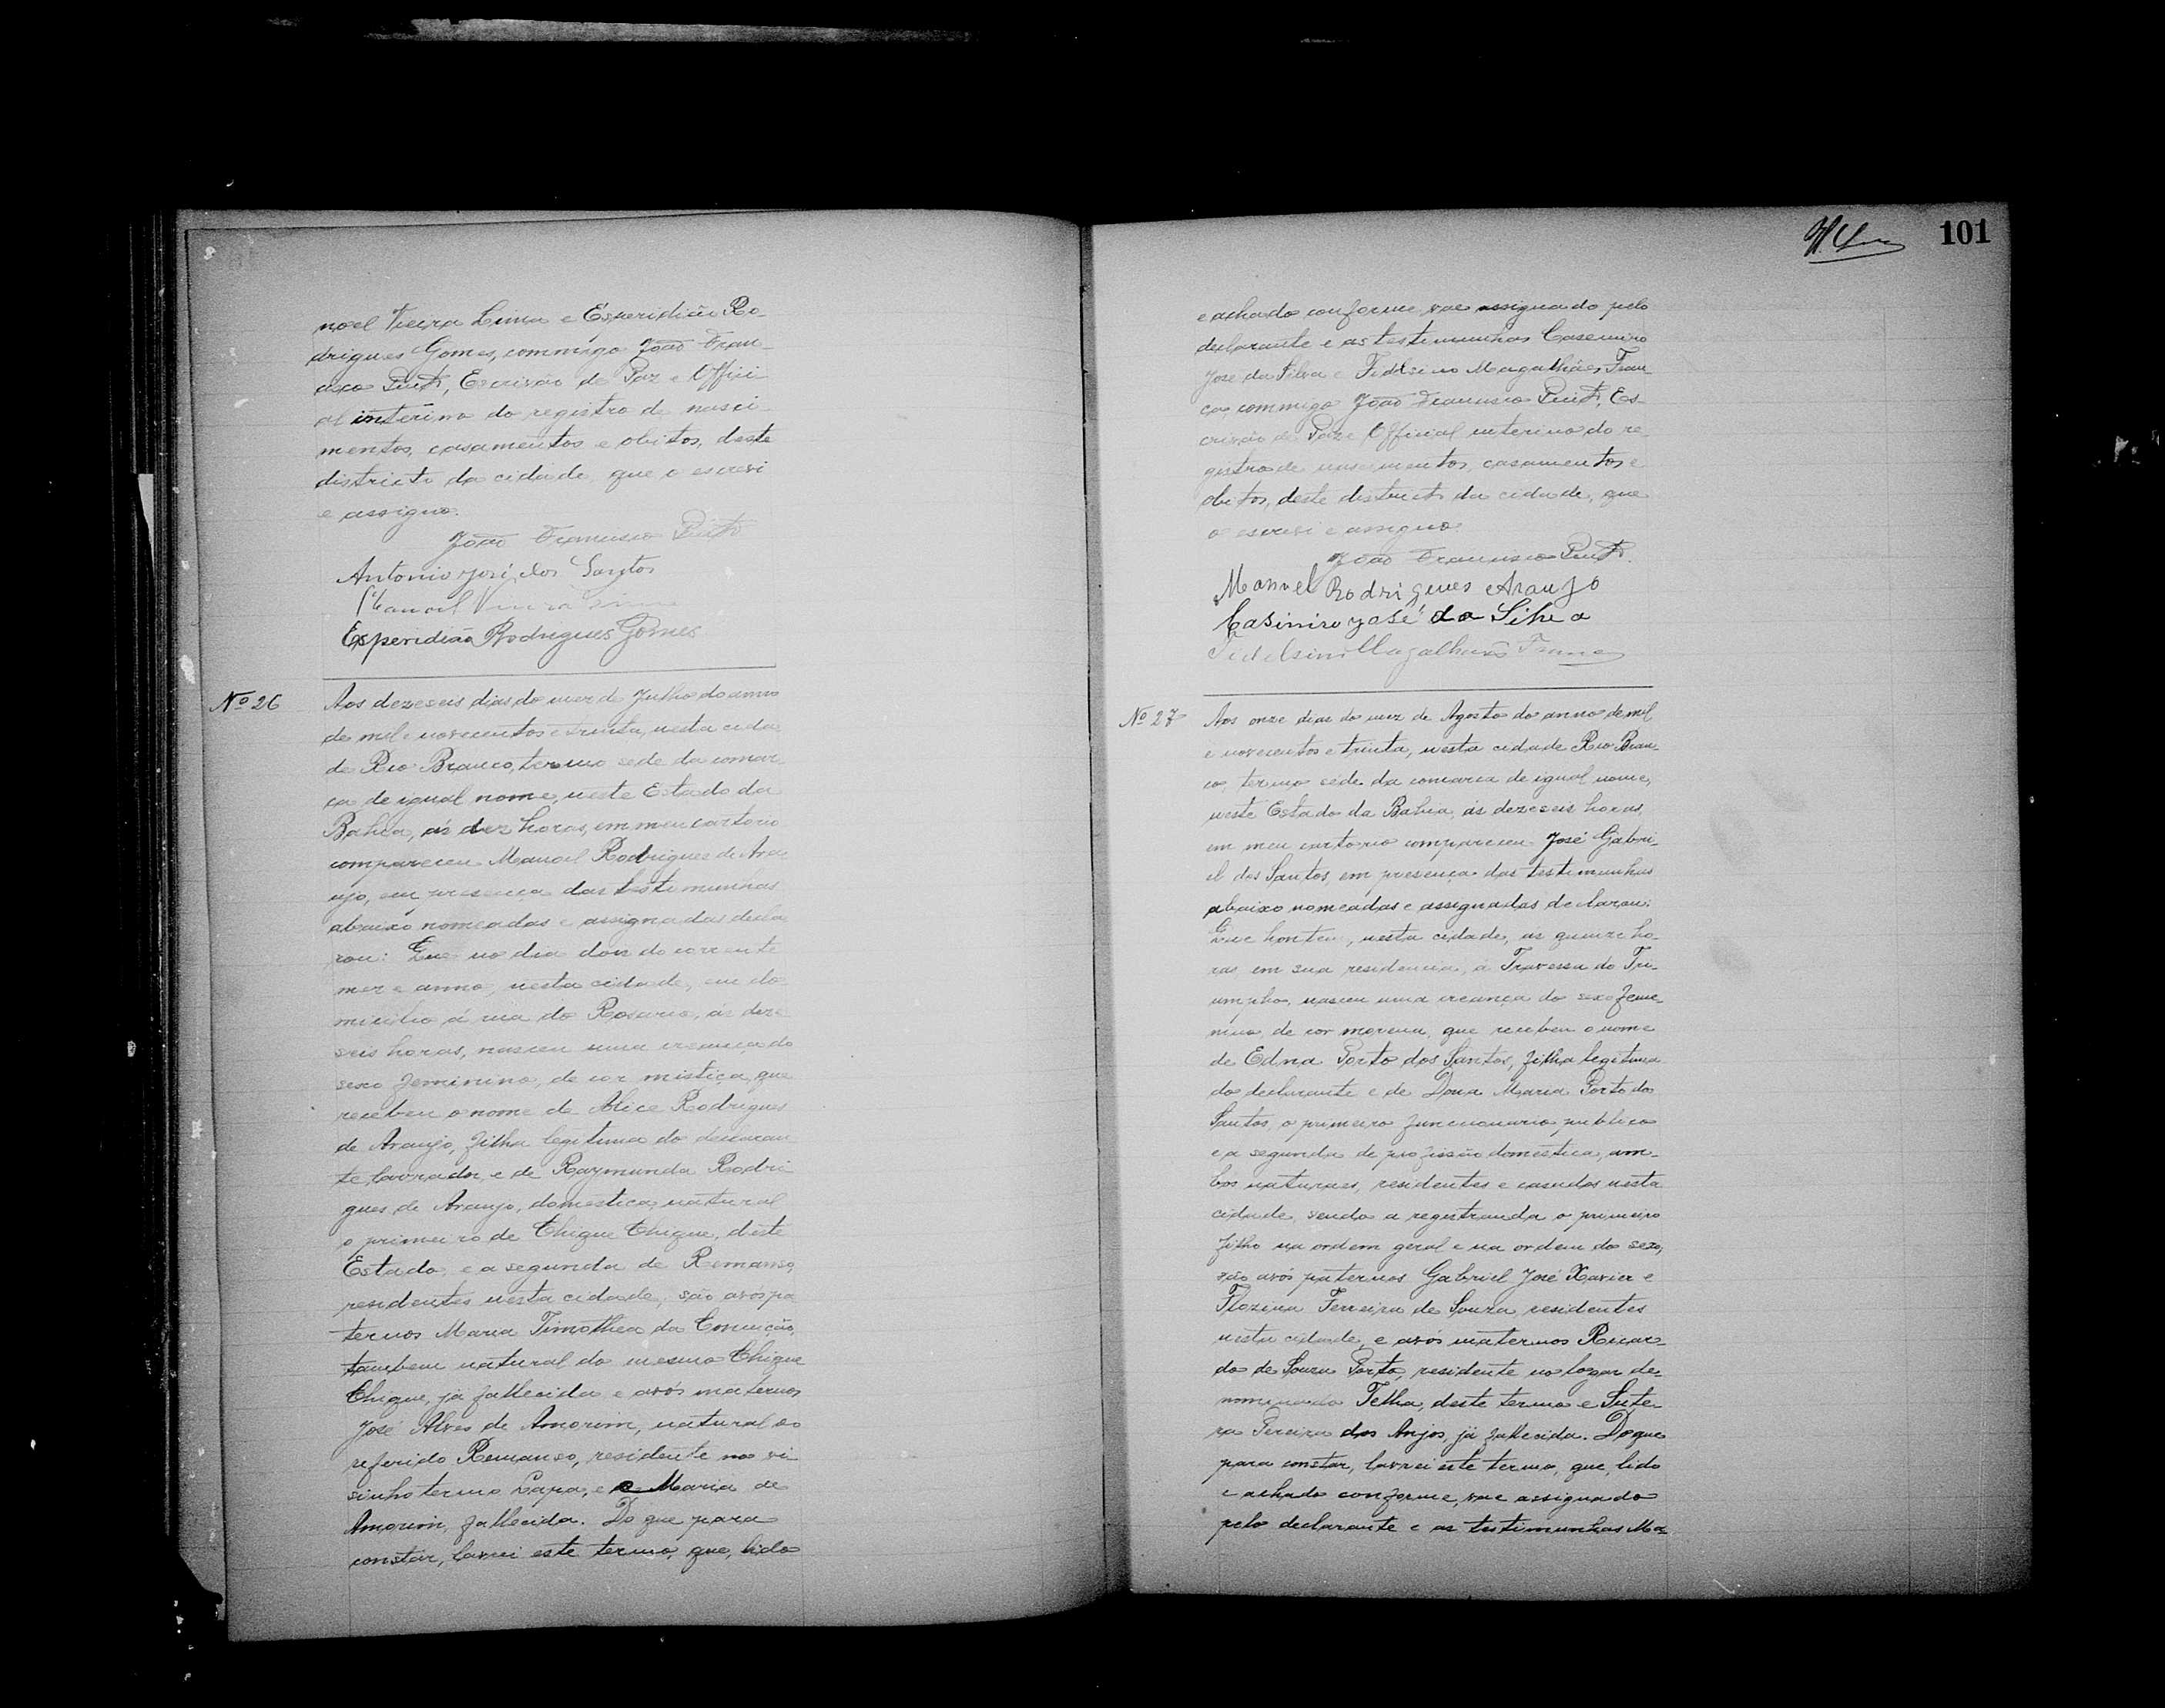 noel Vieira Lima e Esperidião Ro-
drigues Gomes, commigo João Fran-
cisco Pinto, Escrivão de Paz e Offici-
al interino do registro de nasci-
mentos, casamentos e obitos, deste
districto da cidade, que o escrevi
e assigno.
João Francisco Pinto
Antonio José dos Santos
Manoel Vieira Lima
Esperidião Rodrigues Gomes
Nº 26
Aos dezeseis dias do mez de Julho do anno
de mil e novecentos e trinta, nesta cida
de Rio Branco, termo sede da comar
ca de igual nome, neste Estado da
Bahia, ás dez horas, em meu cartorio
compareceu Manoel Rodrigues de Ara
ujo, em presença das testemunhas
abaixo nomeadas e assignadas decla
rou: Que no dia dois do corrente
mez e anno, nesta cidade, em do-
micilio á rua do Rosario, ás deze
seis horas, nasceu uma creança do
sexo feminino, de cor mistiça, que
recebeu o nome de Alice Rodrigues
de Araujo, filha legitima do declaran
te, lavrador, e de Raymunda Rodri-
gues de Araujo, domestica, natural
o primeiro de Chique Chique, deste
Estado, e a segunda de Remanso,
residentes nesta cidade; são avós pa
ternos Maria Timothea da Conceição,
tambem natural do mesmo Chique
Chique, já fallecida e avós maternos
José Alves de Amorim, natural do
referido Remanso, residente no vi-
sinho termo Lapa, e Maria de
Amorim, fallecida. Do que para
constar, lavrei este termo, que, lido
101
e achado conforme, vae assignado pelo
declarante e as testemunhas Casemiro
José da Silva e Fidelsino Magalhães Fran-
ça commigo João Francisco Pinto, Es-
crivão de Paz e Official interino do re-
gistro de nascimentos, casamentos e
obitos, deste districto da cidade, que
o escrevi e assigno.
João Francisco Pinto.
Manoel Rodrigues Araujo
Casimiro José da Silva
Fidelsino Magalhães França
Nº 27
Aos onze dias do mez de Agosto do anno de mil
e novecentos e trinta, nesta cidade Rio Bran-
co, termo sede da comarca de igual nome,
neste Estado da Bahia, ás dezeseis horas,
em meu cartorio compareceu José Gabri-
el dos Santos, em presença das testemunhas
abaixo nomeadas e assignadas declarou:
Que hontem, nesta cidade, as quinze ho-
ras em sua residencia, á Travessa do Tri-
umpho, nasceu uma creança do sexo femi-
nino, de cor morena, que recebeu o nome
de Edna Porto dos Santos, filha legitima
do declarante e de Dona Maria Porto dos
Santos, o primeiro funccionario publico
e a segunda de profissão domestica, am-
bos naturaes, residentes e casados nesta
cidade, sendo a registranda o primeiro
filho na ordem geral e na ordem do sexo,
são avós paternos Gabriel José Xavier e
Flozina Ferreira de Souza, residentes
nesta cidade e avós maternos Ricar-
do de Souza Porto, residente no logar de-
nominado Telha, deste termo e Sute-
ra Pereira dos Anjos, já fallecida. Do que
para constar, lavrei este termo, que, lido
e achado conforme, vae assignado
pelo declarante e as testemunhas Ma-